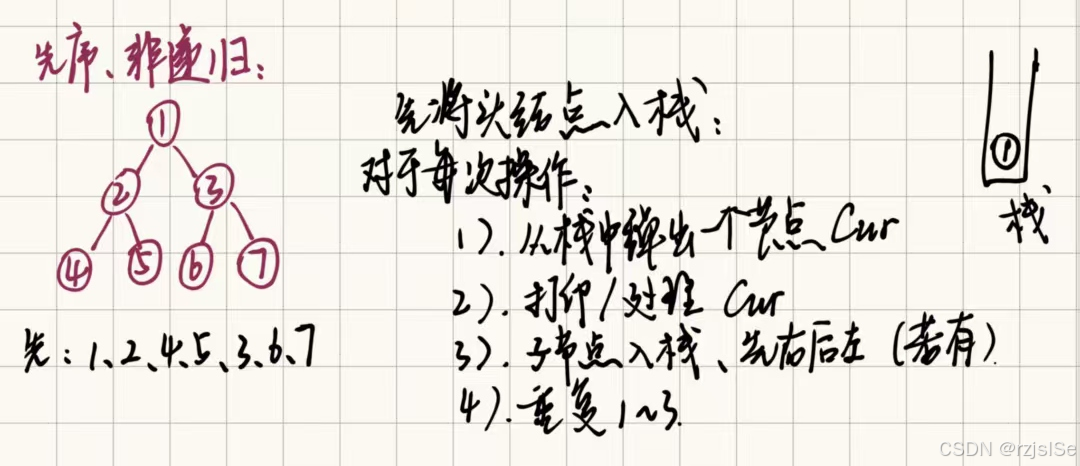 先序、非递归：
1
2 3
4 5 6 7
先：1、2、4、5、3、6、7
先将头结点入栈：
对于每次操作：
1）.从栈中弹出一个节点 Cur
2）.打印/处理 Cur
3）.子节点入栈、先右后左（若有）
4）.重复 1~3.
1
栈
CSDN @rzjslSe